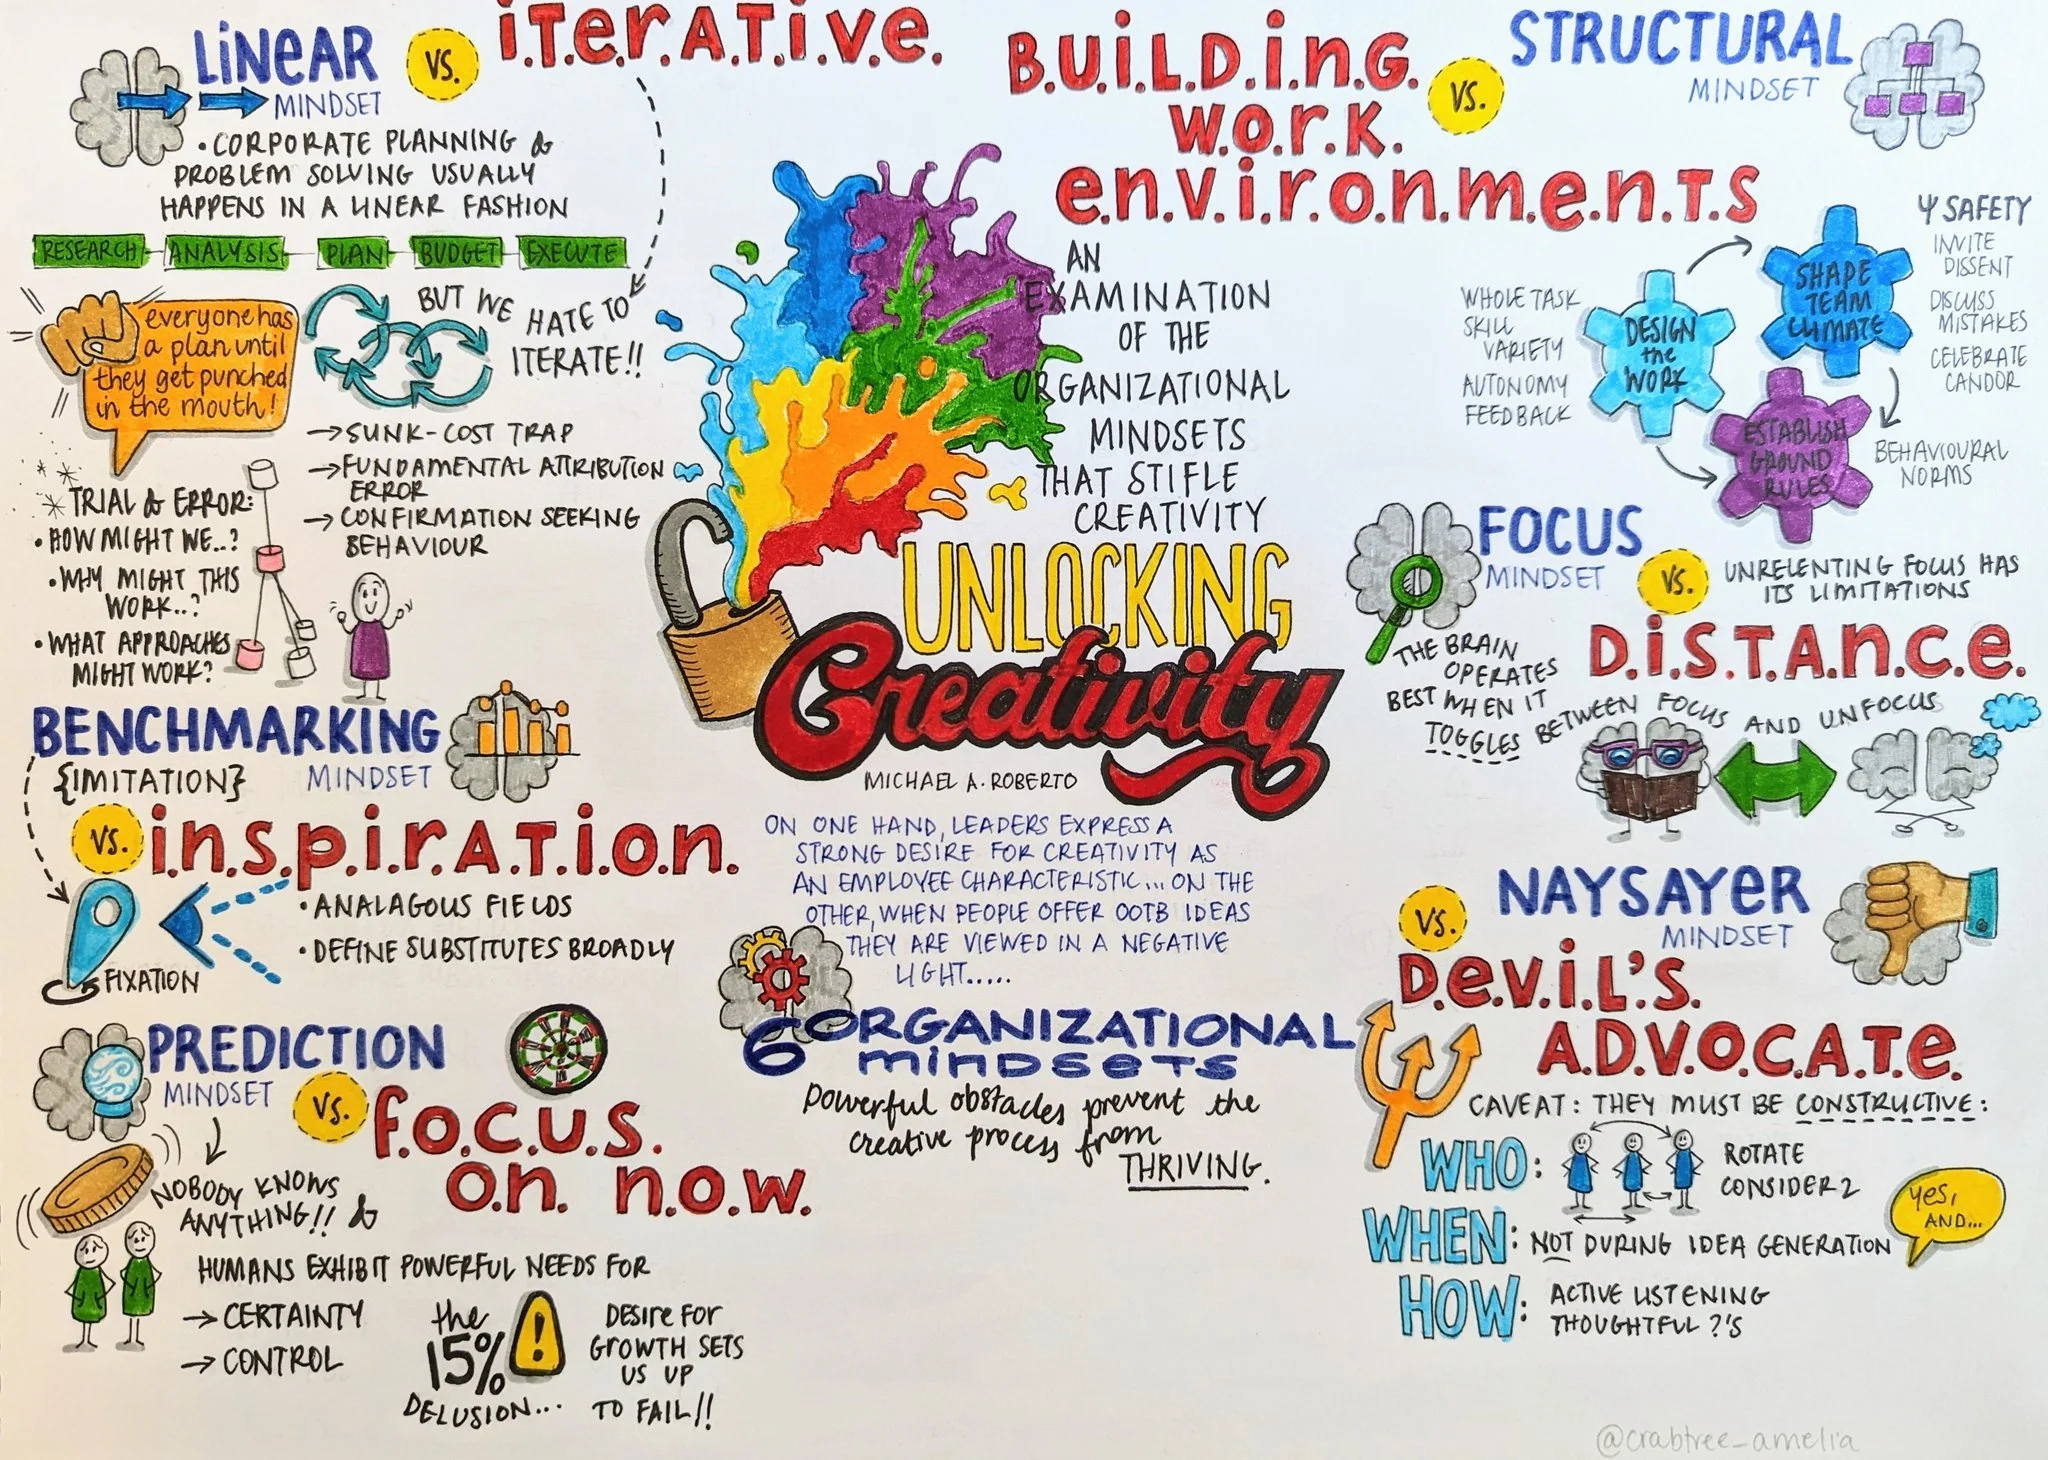 LINEAR
MINDSET
VS.
i.T.e.r.A.T.i.v.e.
• CORPORATE PLANNING &
PROBLEM SOLVING USUALLY
HAPPENS IN A LINEAR FASHION
RESEARCH ANALYSIS PLAN BUDGET EXECUTE
everyone has
a plan until
they get punched
in the mouth!
BUT WE
HATE TO
ITERATE!!
→ SUNK-COST TRAP
→ FUNDAMENTAL ATTRIBUTION
ERROR
→ CONFIRMATION SEEKING
BEHAVIOUR
TRIAL & ERROR:
• HOW MIGHT WE..?
• WHY MIGHT THIS
WORK..?
• WHAT APPROACHES
MIGHT WORK?
BENCHMARKING
{IMITATION} MINDSET
VS.
i.n.s.p.i.r.A.T.i.o.n.
• ANALAGOUS FIELDS
• DEFINE SUBSTITUTES BROADLY
FIXATION
PREDICTION
MINDSET
VS.
f.o.c.u.s.
o.n. n.o.w.
NOBODY KNOWS
ANYTHING!! &
HUMANS EXHIBIT POWERFUL NEEDS FOR
→ CERTAINTY
→ CONTROL
the
15%
DELUSION...
!
DESIRE FOR
GROWTH SETS
US UP
TO FAIL!!
AN
EXAMINATION
OF THE
ORGANIZATIONAL
MINDSETS
THAT STIFLE
CREATIVITY
UNLOCKING
Creativity
MICHAEL A. ROBERTO
ON ONE HAND, LEADERS EXPRESS A
STRONG DESIRE FOR CREATIVITY AS
AN EMPLOYEE CHARACTERISTIC... ON THE
OTHER, WHEN PEOPLE OFFER OOTB IDEAS
THEY ARE VIEWED IN A NEGATIVE
LIGHT.....
6 ORGANIZATIONAL
mindsets
Powerful obstacles prevent the
creative process from
THRIVING.
B.U.i.L.D.i.n.G.
W.o.r.K.
e.n.v.i.r.o.n.m.e.n.T.S
VS.
STRUCTURAL
MINDSET
WHOLE TASK
SKILL
VARIETY
AUTONOMY
FEEDBACK
DESIGN
the
WORK
SHAPE
TEAM
CLIMATE
ESTABLISH
GROUND
RULES
Ψ SAFETY
INVITE
DISSENT
DISCUSS
MISTAKES
CELEBRATE
CANDOR
BEHAVIOURAL
NORMS
FOCUS
MINDSET
VS.
UNRELENTING FOCUS HAS
ITS LIMITATIONS
D.i.S.T.A.n.C.e.
THE BRAIN
OPERATES
BEST WHEN IT
TOGGLES BETWEEN FOCUS AND UNFOCUS
NAYSAYER
MINDSET
VS.
D.e.v.i.L'S.
A.D.V.O.C.A.T.e.
CAVEAT: THEY MUST BE CONSTRUCTIVE:
WHO: ROTATE
CONSIDER 2
WHEN: NOT DURING IDEA GENERATION
yes,
AND...
HOW: ACTIVE LISTENING
THOUGHTFUL ?'S
@crabtree_amelia